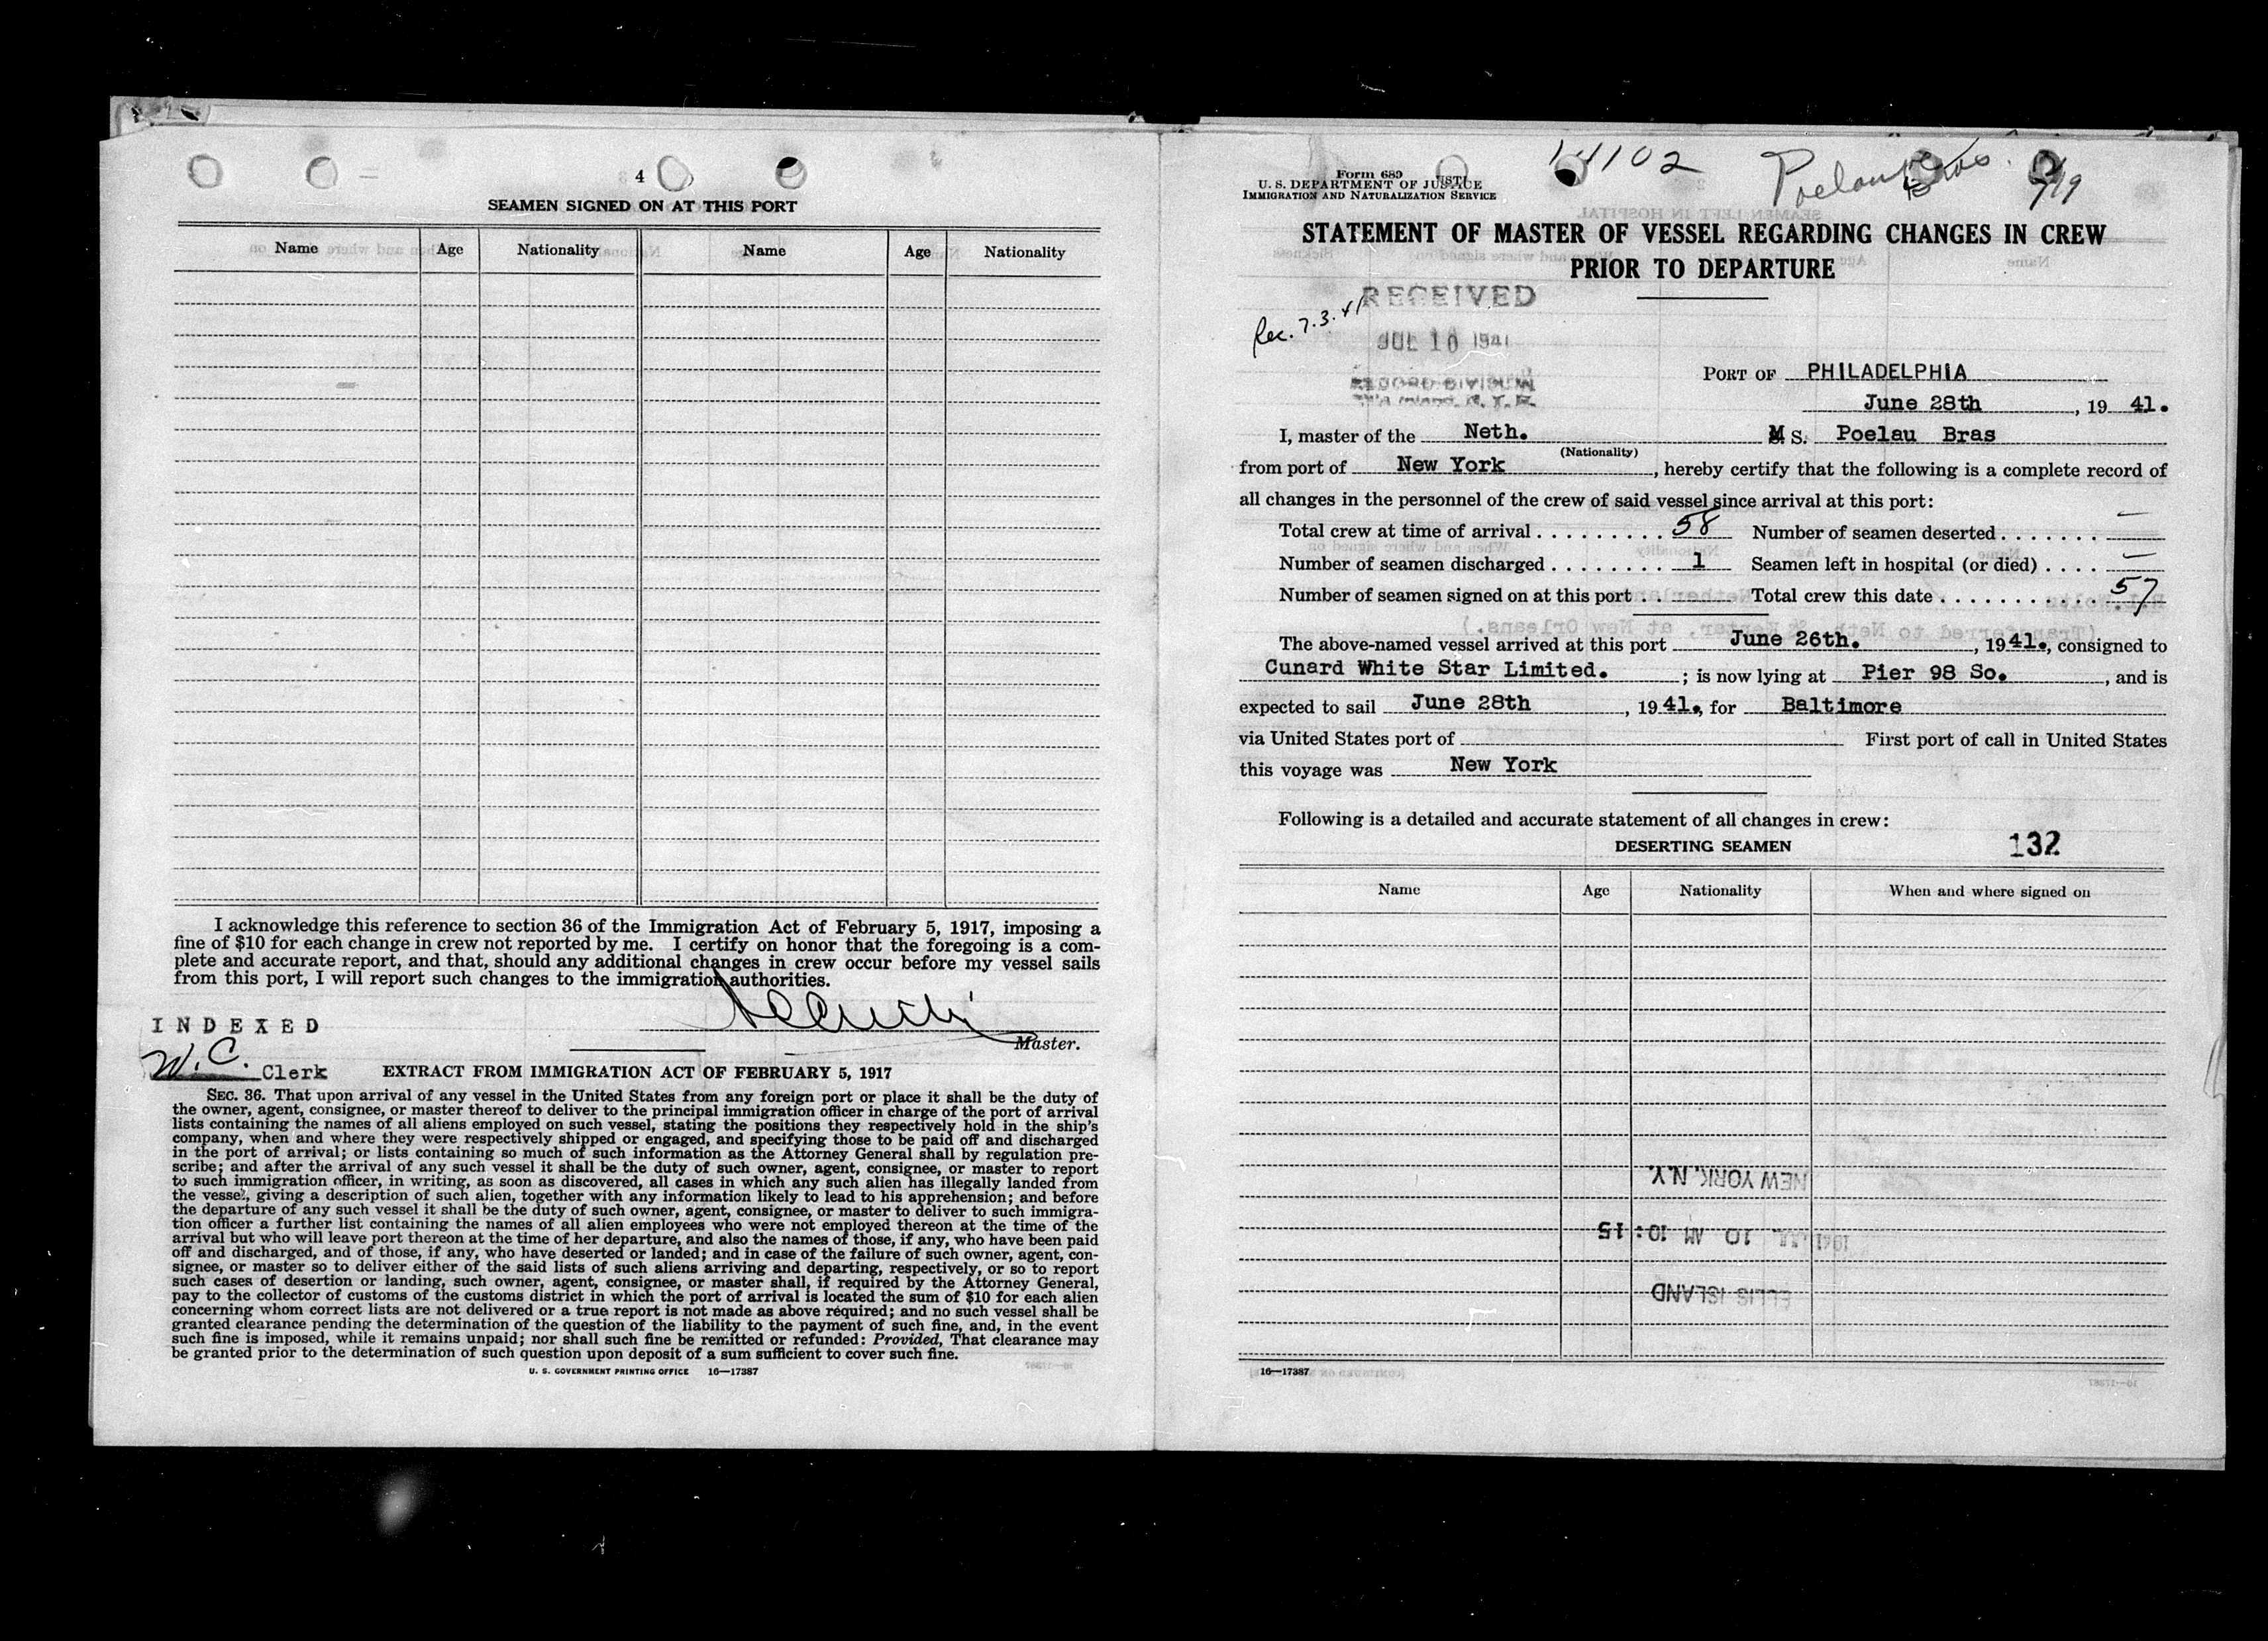 4
SEAMEN SIGNED ON AT THIS PORT
Name Age Nationality Name Age Nationality
I acknowledge this reference to section 36 of the Immigration Act of February 5, 1917, imposing a
fine of $10 for each change in crew not reported by me. I certify on honor that the foregoing is a com-
plete and accurate report, and that, should any additional changes in crew occur before my vessel sails
from this port, I will report such changes to the immigration authorities.
INDEXED
Master.
W. C. Clerk
EXTRACT FROM IMMIGRATION ACT OF FEBRUARY 5, 1917
SEC. 36. That upon arrival of any vessel in the United States from any foreign port or place it shall be the duty of
the owner, agent, consignee, or master thereof to deliver to the principal immigration officer in charge of the port of arrival
lists containing the names of all aliens employed on such vessel, stating the positions they respectively hold in the ship's
company, when and where they were respectively shipped or engaged, and specifying those to be paid off and discharged
in the port of arrival; or lists containing so much of such information as the Attorney General shall by regulation pre-
scribe; and after the arrival of any such vessel it shall be the duty of such owner, agent, consignee, or master to report
to such immigration officer, in writing, as soon as discovered, all cases in which any such alien has illegally landed from
the vessel, giving a description of such alien, together with any information likely to lead to his apprehension; and before
the departure of any such vessel it shall be the duty of such owner, agent, consignee, or master to deliver to such immigra-
tion officer a further list containing the names of all alien employees who were not employed thereon at the time of the
arrival but who will leave port thereon at the time of her departure, and also the names of those, if any, who have been paid
off and discharged, and of those, if any, who have deserted or landed; and in case of the failure of such owner, agent, con-
signee, or master so to deliver either of the said lists of such aliens arriving and departing, respectively, or so to report
such cases of desertion or landing, such owner, agent, consignee, or master shall, if required by the Attorney General,
pay to the collector of customs of the customs district in which the port of arrival is located the sum of $10 for each alien
concerning whom correct lists are not delivered or a true report is not made as above required; and no such vessel shall be
granted clearance pending the determination of the question of the liability to the payment of such fine, and, in the event
such fine is imposed, while it remains unpaid; nor shall such fine be remitted or refunded: Provided, That clearance may
be granted prior to the determination of such question upon deposit of a sum sufficient to cover such fine.
U. S. GOVERNMENT PRINTING OFFICE 16—17387
14102 Poelau Bras 7/9
Form 689
U. S. DEPARTMENT OF JUSTICE
IMMIGRATION AND NATURALIZATION SERVICE
STATEMENT OF MASTER OF VESSEL REGARDING CHANGES IN CREW
PRIOR TO DEPARTURE
RECEIVED
Rec. 7.3.41
JUL 10 1941
RECORD DIVISION
PORT OF PHILADELPHIA
June 28th, 19 41.
I, master of the Neth. M S. Poelau Bras
(Nationality)
from port of New York, hereby certify that the following is a complete record of
all changes in the personnel of the crew of said vessel since arrival at this port:
Total crew at time of arrival . . . . . . . . . 58 Number of seamen deserted . . . . . . . —
Number of seamen discharged . . . . . . . . 1 Seamen left in hospital (or died) . . . . —
Number of seamen signed on at this port . . Total crew this date . . . . . . . . . . . . 57
The above-named vessel arrived at this port June 26th., 19 41., consigned to
Cunard White Star Limited. ; is now lying at Pier 98 So., and is
expected to sail June 28th, 19 41., for Baltimore
via United States port of First port of call in United States
this voyage was New York
Following is a detailed and accurate statement of all changes in crew:
DESERTING SEAMEN 132
Name Age Nationality When and where signed on
NEW YORK, N.Y.
1941 JUL 10 AM 10:15
ELLIS ISLAND
16—17387